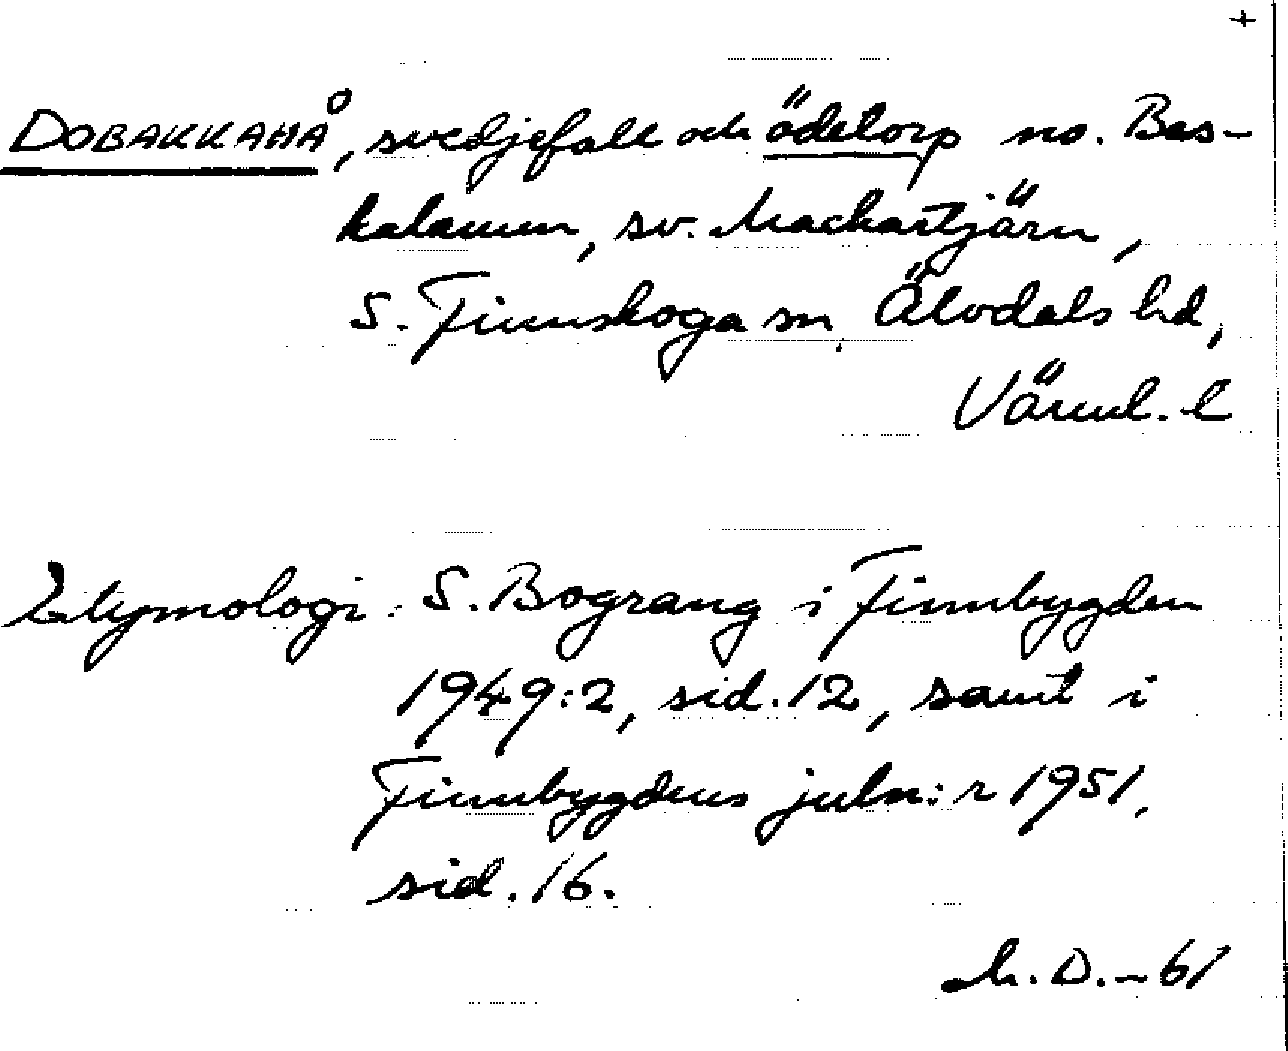 +
DOBAKKAHÅ, svedjefall och ödetorp no. Bas-
kalammen, sv. Mackartjärn,
S. Finnskoga sn, Älvdals hd,
Värml. l
Etymologi: S. Bograng i Finnbygden
1949:2, sid. 12, samt i
Finnbygdens juln:r 1951,
sid. 16.
M. D. - 61